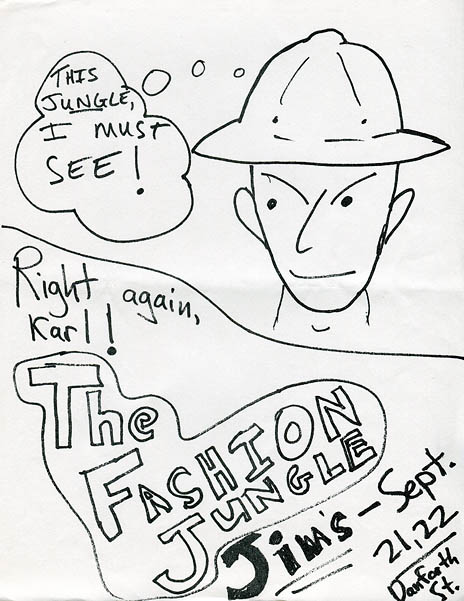 THIS
JUNGLE,
I MUST
SEE!
Right again,
Karl!
The
FASHION
JUNGLE
Jim's - Sept.
21, 22
Danforth
St.